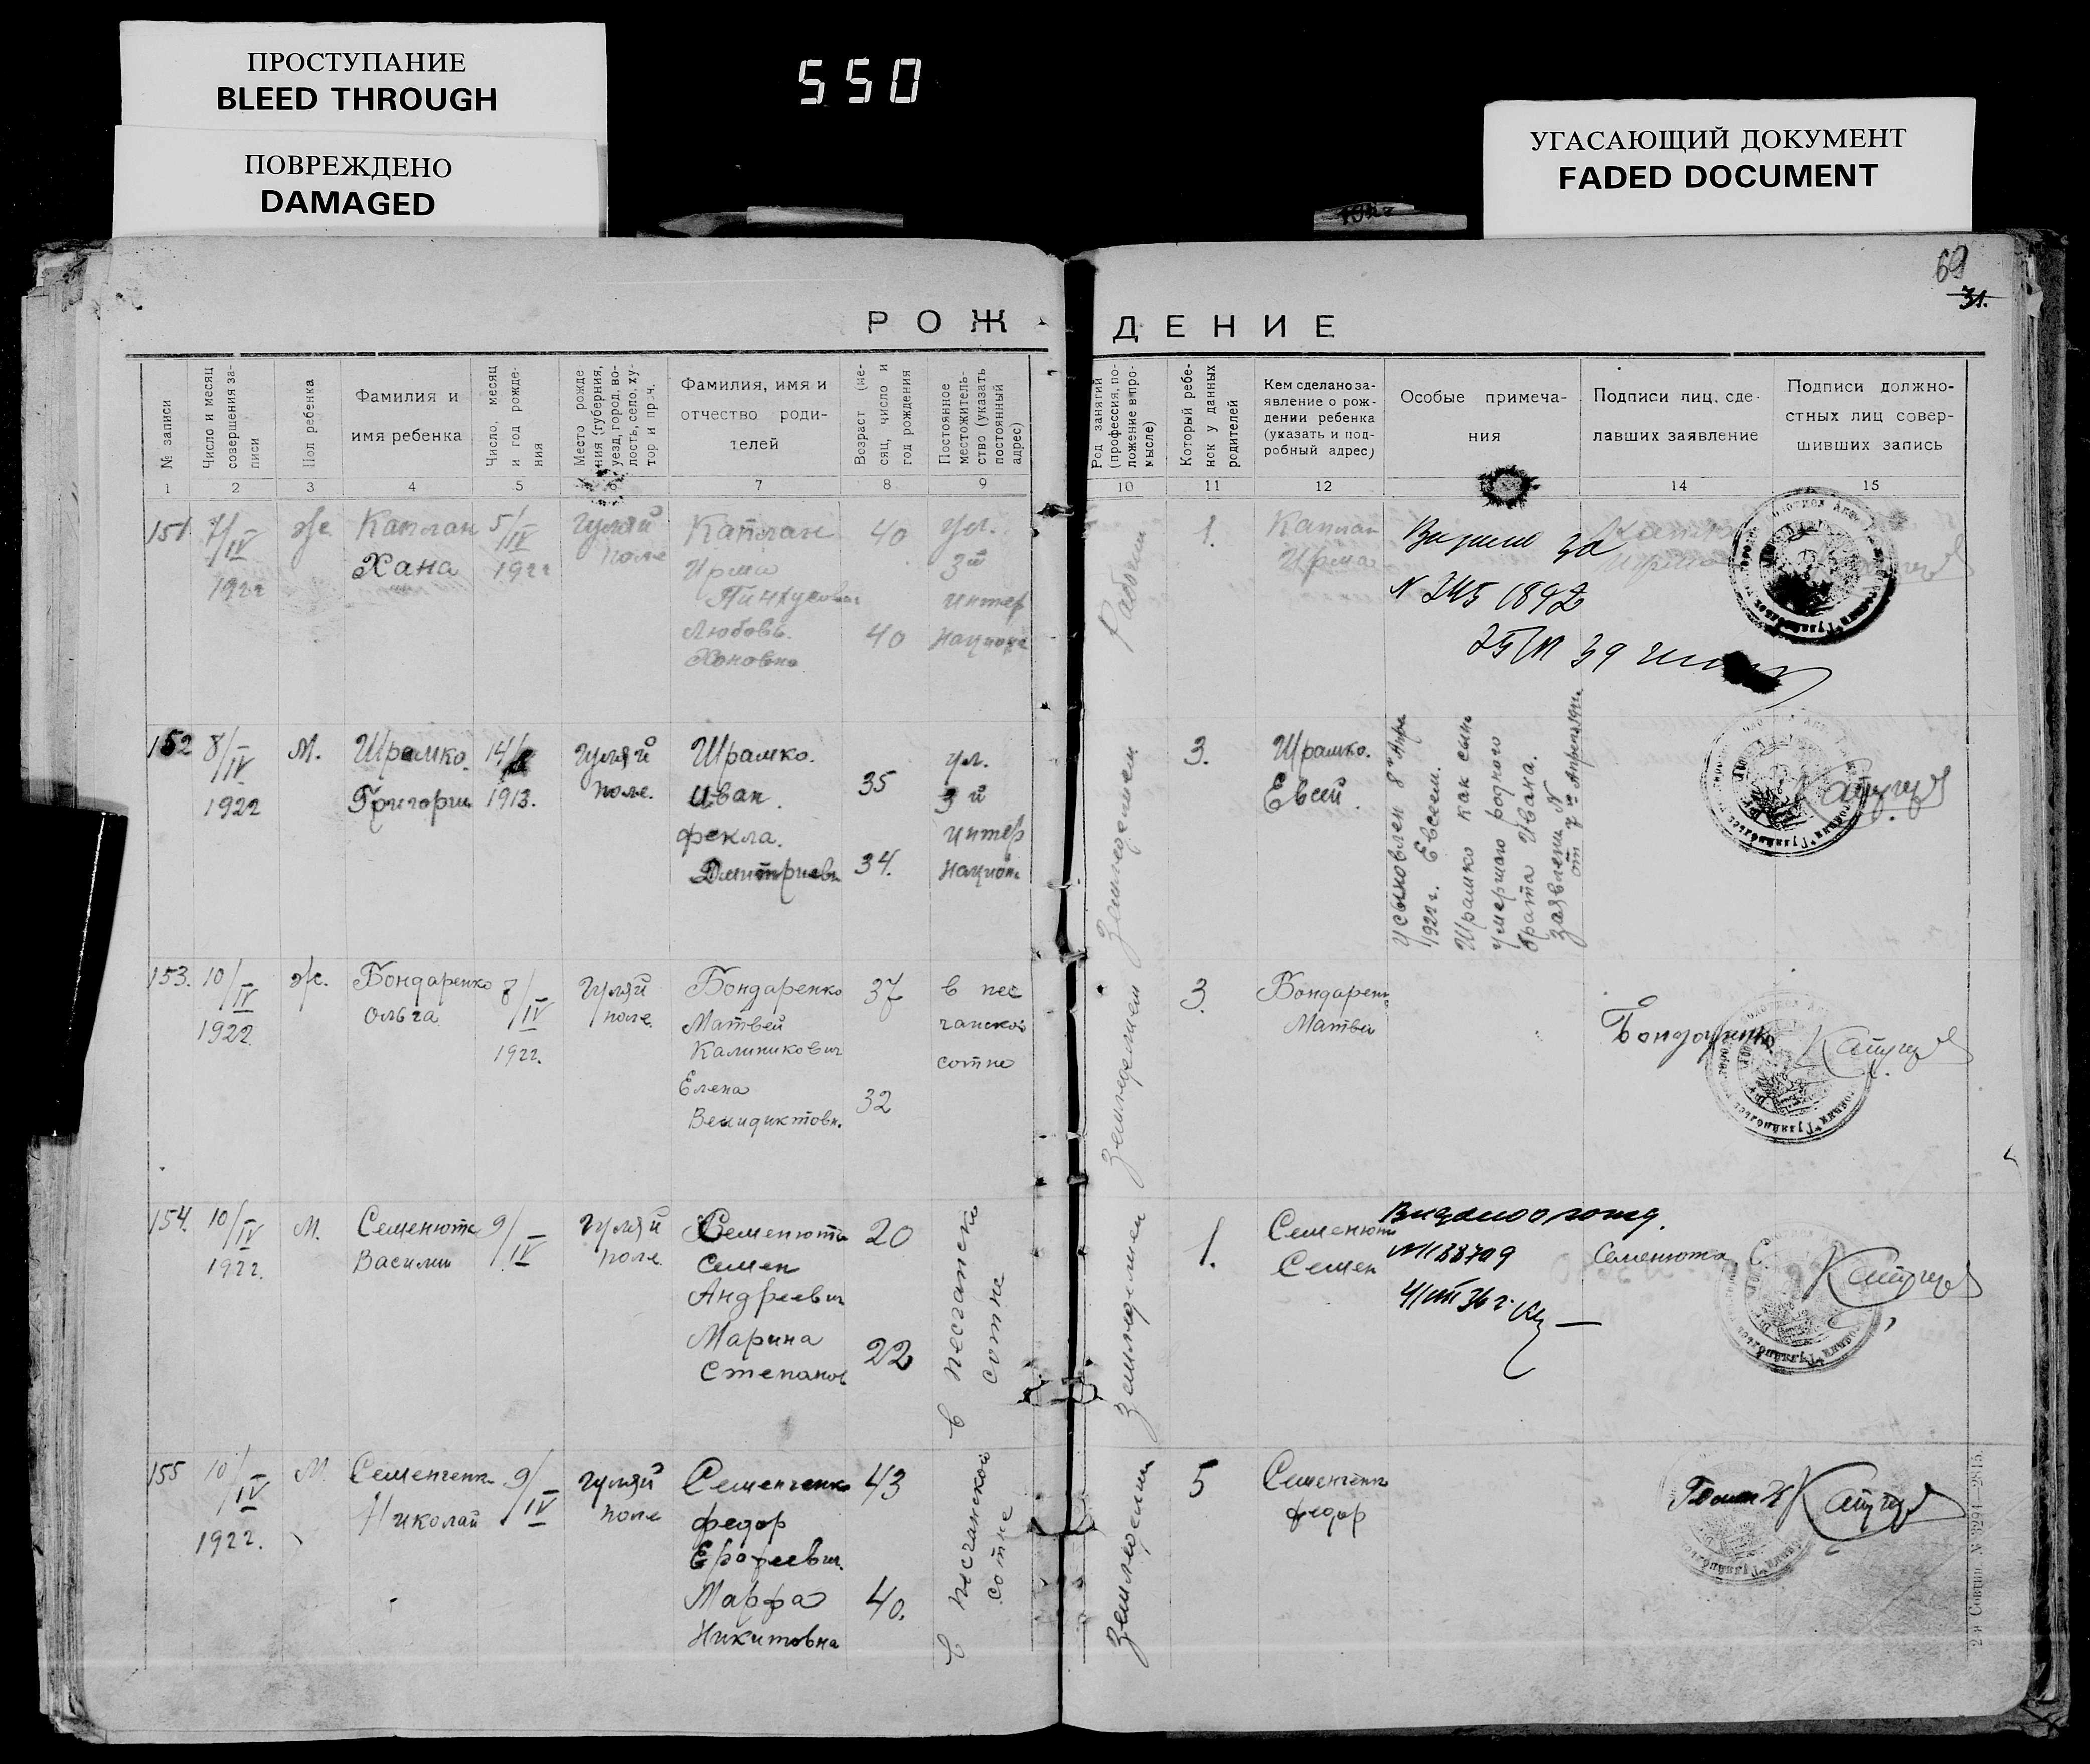 ПРОСТУПАНИЕ
BLEED THROUGH
ПОВРЕЖДЕНО
DAMAGED
550
УГАСАЮЩИЙ ДОКУМЕНТ
FADED DOCUMENT
69
31.
РОЖДЕНИЕ
№ записи
Число и месяц
совершения за-
писи
Пол ребенка
Фамилия и
имя ребенка
Число, месяц
и год рожде-
ния
Место рожде
ния (губерния,
уезд, город, во-
лость, село, ху-
тор и проч.
Фамилия, имя и
отчество роди-
телей
Возраст (ме-
сяц, число и
год рождения
Постоянное
местожитель-
ство (указать
постоянный
адрес)
Род занятий
(профессия, по-
ложение в про-
мысле)
Который ребе-
нок у данных
родителей
Кем сделано за-
явление о рож-
дении ребенка
(указать и под-
робный адрес)
Особые примеча-
ния
Подписи лиц, сде-
лавших заявление
Подписи должно-
стных лиц совер-
шивших запись
1 2 3 4 5 6 7 8 9 10 11 12 14 15
151 7/IV 1922 ж. Каплан Хана 5/IV 1922
Гуляй поле
Каплан
Ирма
Пинхусович
40
Любовь
Хоновна
40
ул.
3й
интер
национа
Рабочий
1.
Каплан
Ирма
N 245
152 8/IV 1922 М. Шрамко. Григорий 1913.
Гуляй
поле.
Шрамко.
Иван.
35
Фекла.
Дмитриевн
34.
ул.
3й
интер
национ
Земледелием
3.
Шрамко.
Евсей.
Усыновлен 8го Апре
1922 г. Евсеем.
Шрамко как сын
умершого родного
брата Ивана.
заявление N
от 7го Апреля
153. 10/IV 1922 ж. Бондаренко Ольга 8/IV 1922.
Гуляй
поле.
Бондаренко
Матвей
Калиникович
37
Елена
Венидиктовн.
32
в пес
чанской
сотне
Земледелием
3
Бондарен
Матвей
154. 10/IV 1922. М. Семенюта Василий 9/IV
Гуляй
поле
Семенюта
Семен
Андреевич
20
Марина
Степанов
22
в песчанской
сотне
Земледелием
1.
Семенют
Семен
Семенюта С.
155 10/IV 1922. М. Семенченк Николай 9/IV
Гуляй
поле
Семенченко
Федор
Ерофеевич.
43
Марфа
Никитовна
40.
в песчанской
сотне
Земледелием
5
Семенченк
Федор